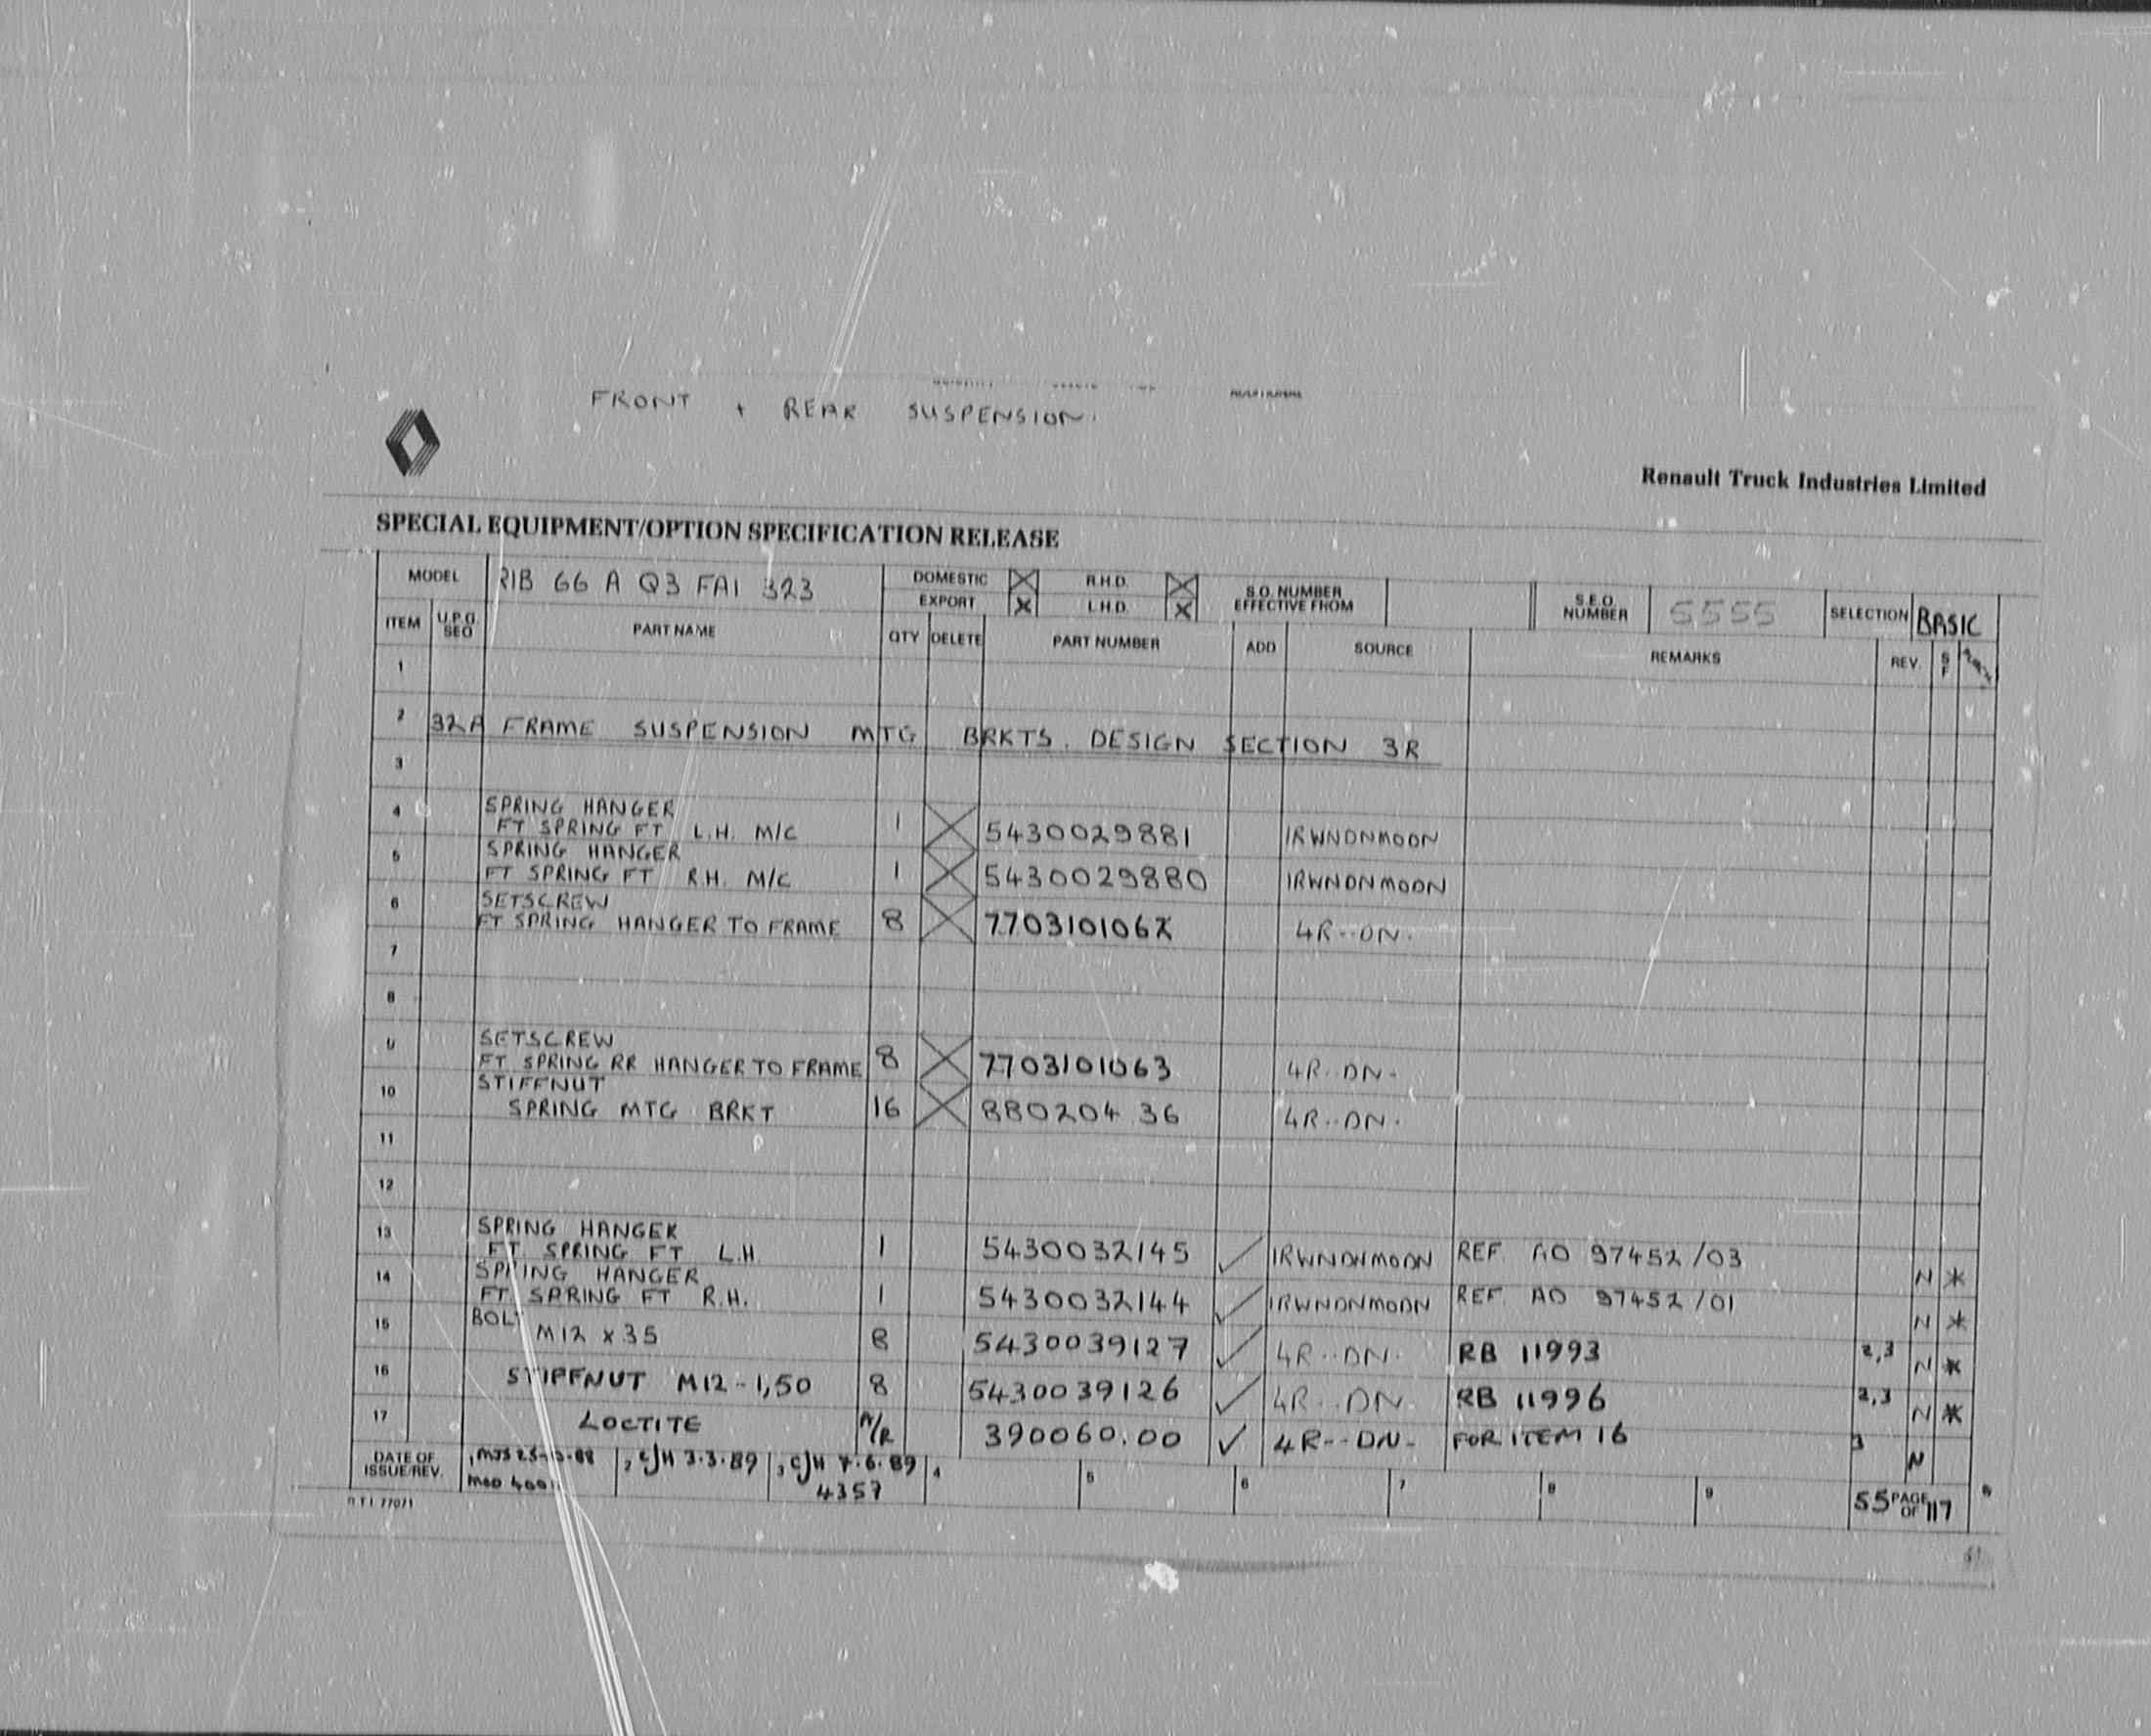 FRONT + REAR SUSPENSION.
Renault Truck Industries Limited
SPECIAL EQUIPMENT/OPTION SPECIFICATION RELEASE
MODEL R1B 66 A Q3 FA1 323 DOMESTIC X R.H.D. X S.O. NUMBER EFFECTIVE FROM S.E.O. NUMBER 5555 SELECTION BASIC
EXPORT X L.H.D. X
ITEM U.P.G. SEQ PART NAME QTY DELETE PART NUMBER ADD SOURCE REMARKS REV. S F
1
2 32A FRAME SUSPENSION MTG BRKTS. DESIGN SECTION 3R
3
4 SPRING HANGER
FT SPRING FT L.H. M/C 1 X 5430029881 IRWNDNMOON
5 SPRING HANGER
FT SPRING FT R.H. M/C 1 X 5430029880 IRWNDNMOON
6 SETSCREW
FT SPRING HANGER TO FRAME 8 X 4R--DN.
7
8
9 SETSCREW
FT SPRING RR HANGER TO FRAME 8 X 7703101063 4R--DN-
10 STIFFNUT
SPRING MTG BRKT 16 X 880204 36 4R--DN.
11
12
13 SPRING HANGER
FT SPRING FT L.H. 1 5430032145 ✓ IRWNDNMOON REF AO 97452/03 N *
14 SPRING HANGER
FT SPRING FT R.H. 1 5430032144 ✓ IRWNDNMOON REF AO 97452/01 N *
15 BOLT
M12 x 35 8 5430039127 ✓ 4R--DN. RB 11993 2,3 N *
16 STIFFNUT M12-1,50 8 5430039126 ✓ 4R--DN. RB 11996 2,3 N *
17 LOCTITE A/R 390060.00 ✓ 4R--DN- FOR ITEM 16 3 N
DATE OF ISSUE/REV. 1 MJS 2 CJH 3.3.89 3 CJH 7.6.89 4 5 6 7 8 9 55 PAGE OF 117
MOD 4357
R.T.I. 77071